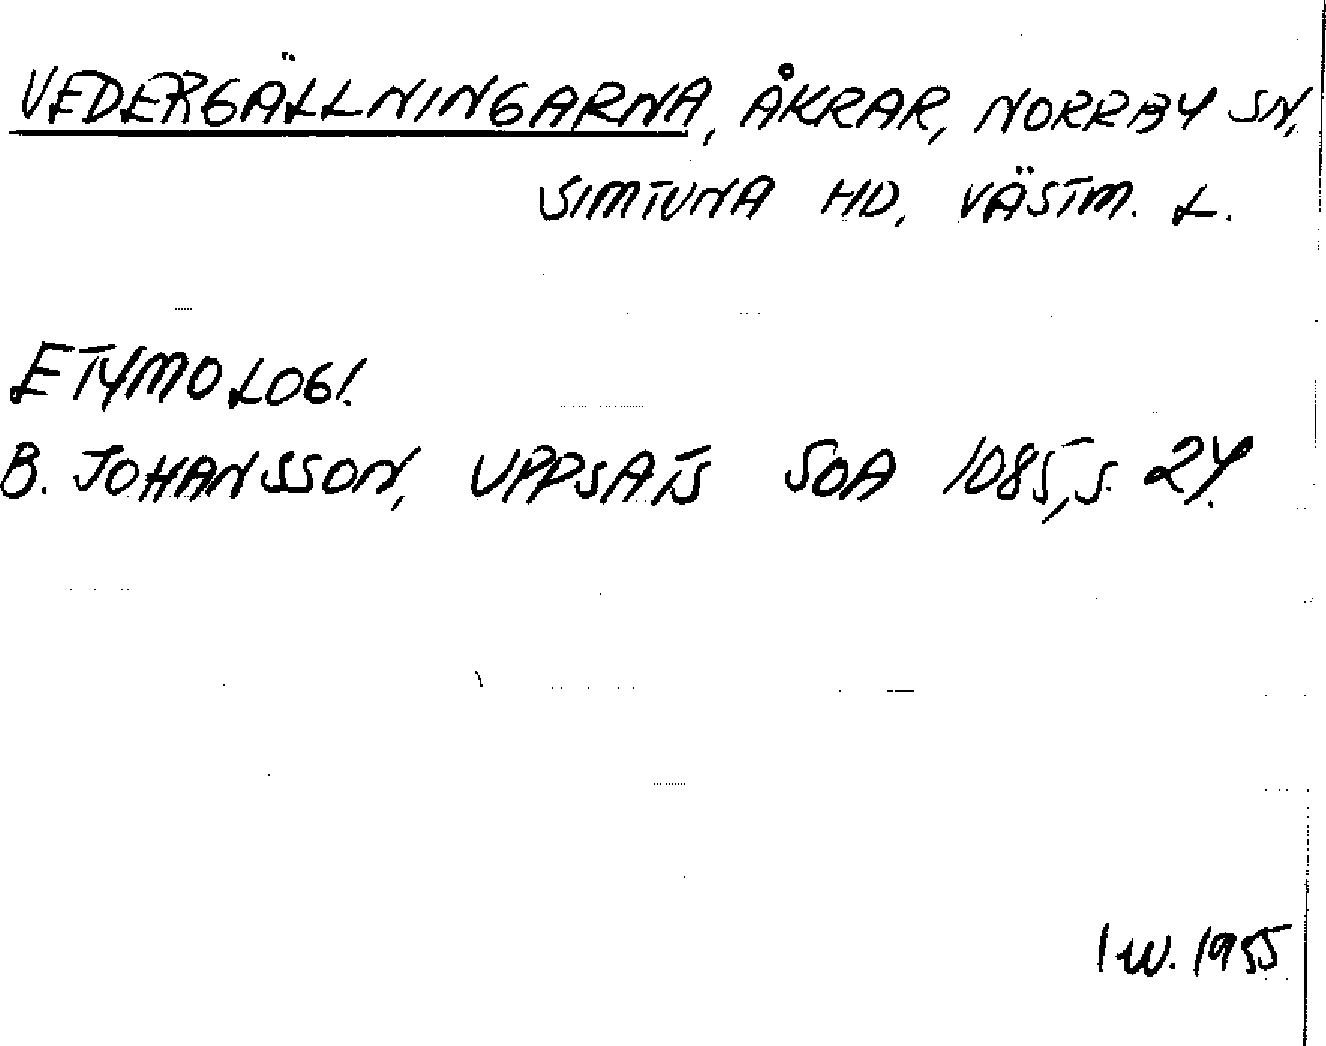 VEDERGÄLLNINGARNA, ÅKRAR, NORRBY SN,
SIMTUNA HD, VÄSTM. L.
ETYMOLOGI.
B. JOHANSSON, UPPSATS SOA 1085, S. 24.
IW. 1955